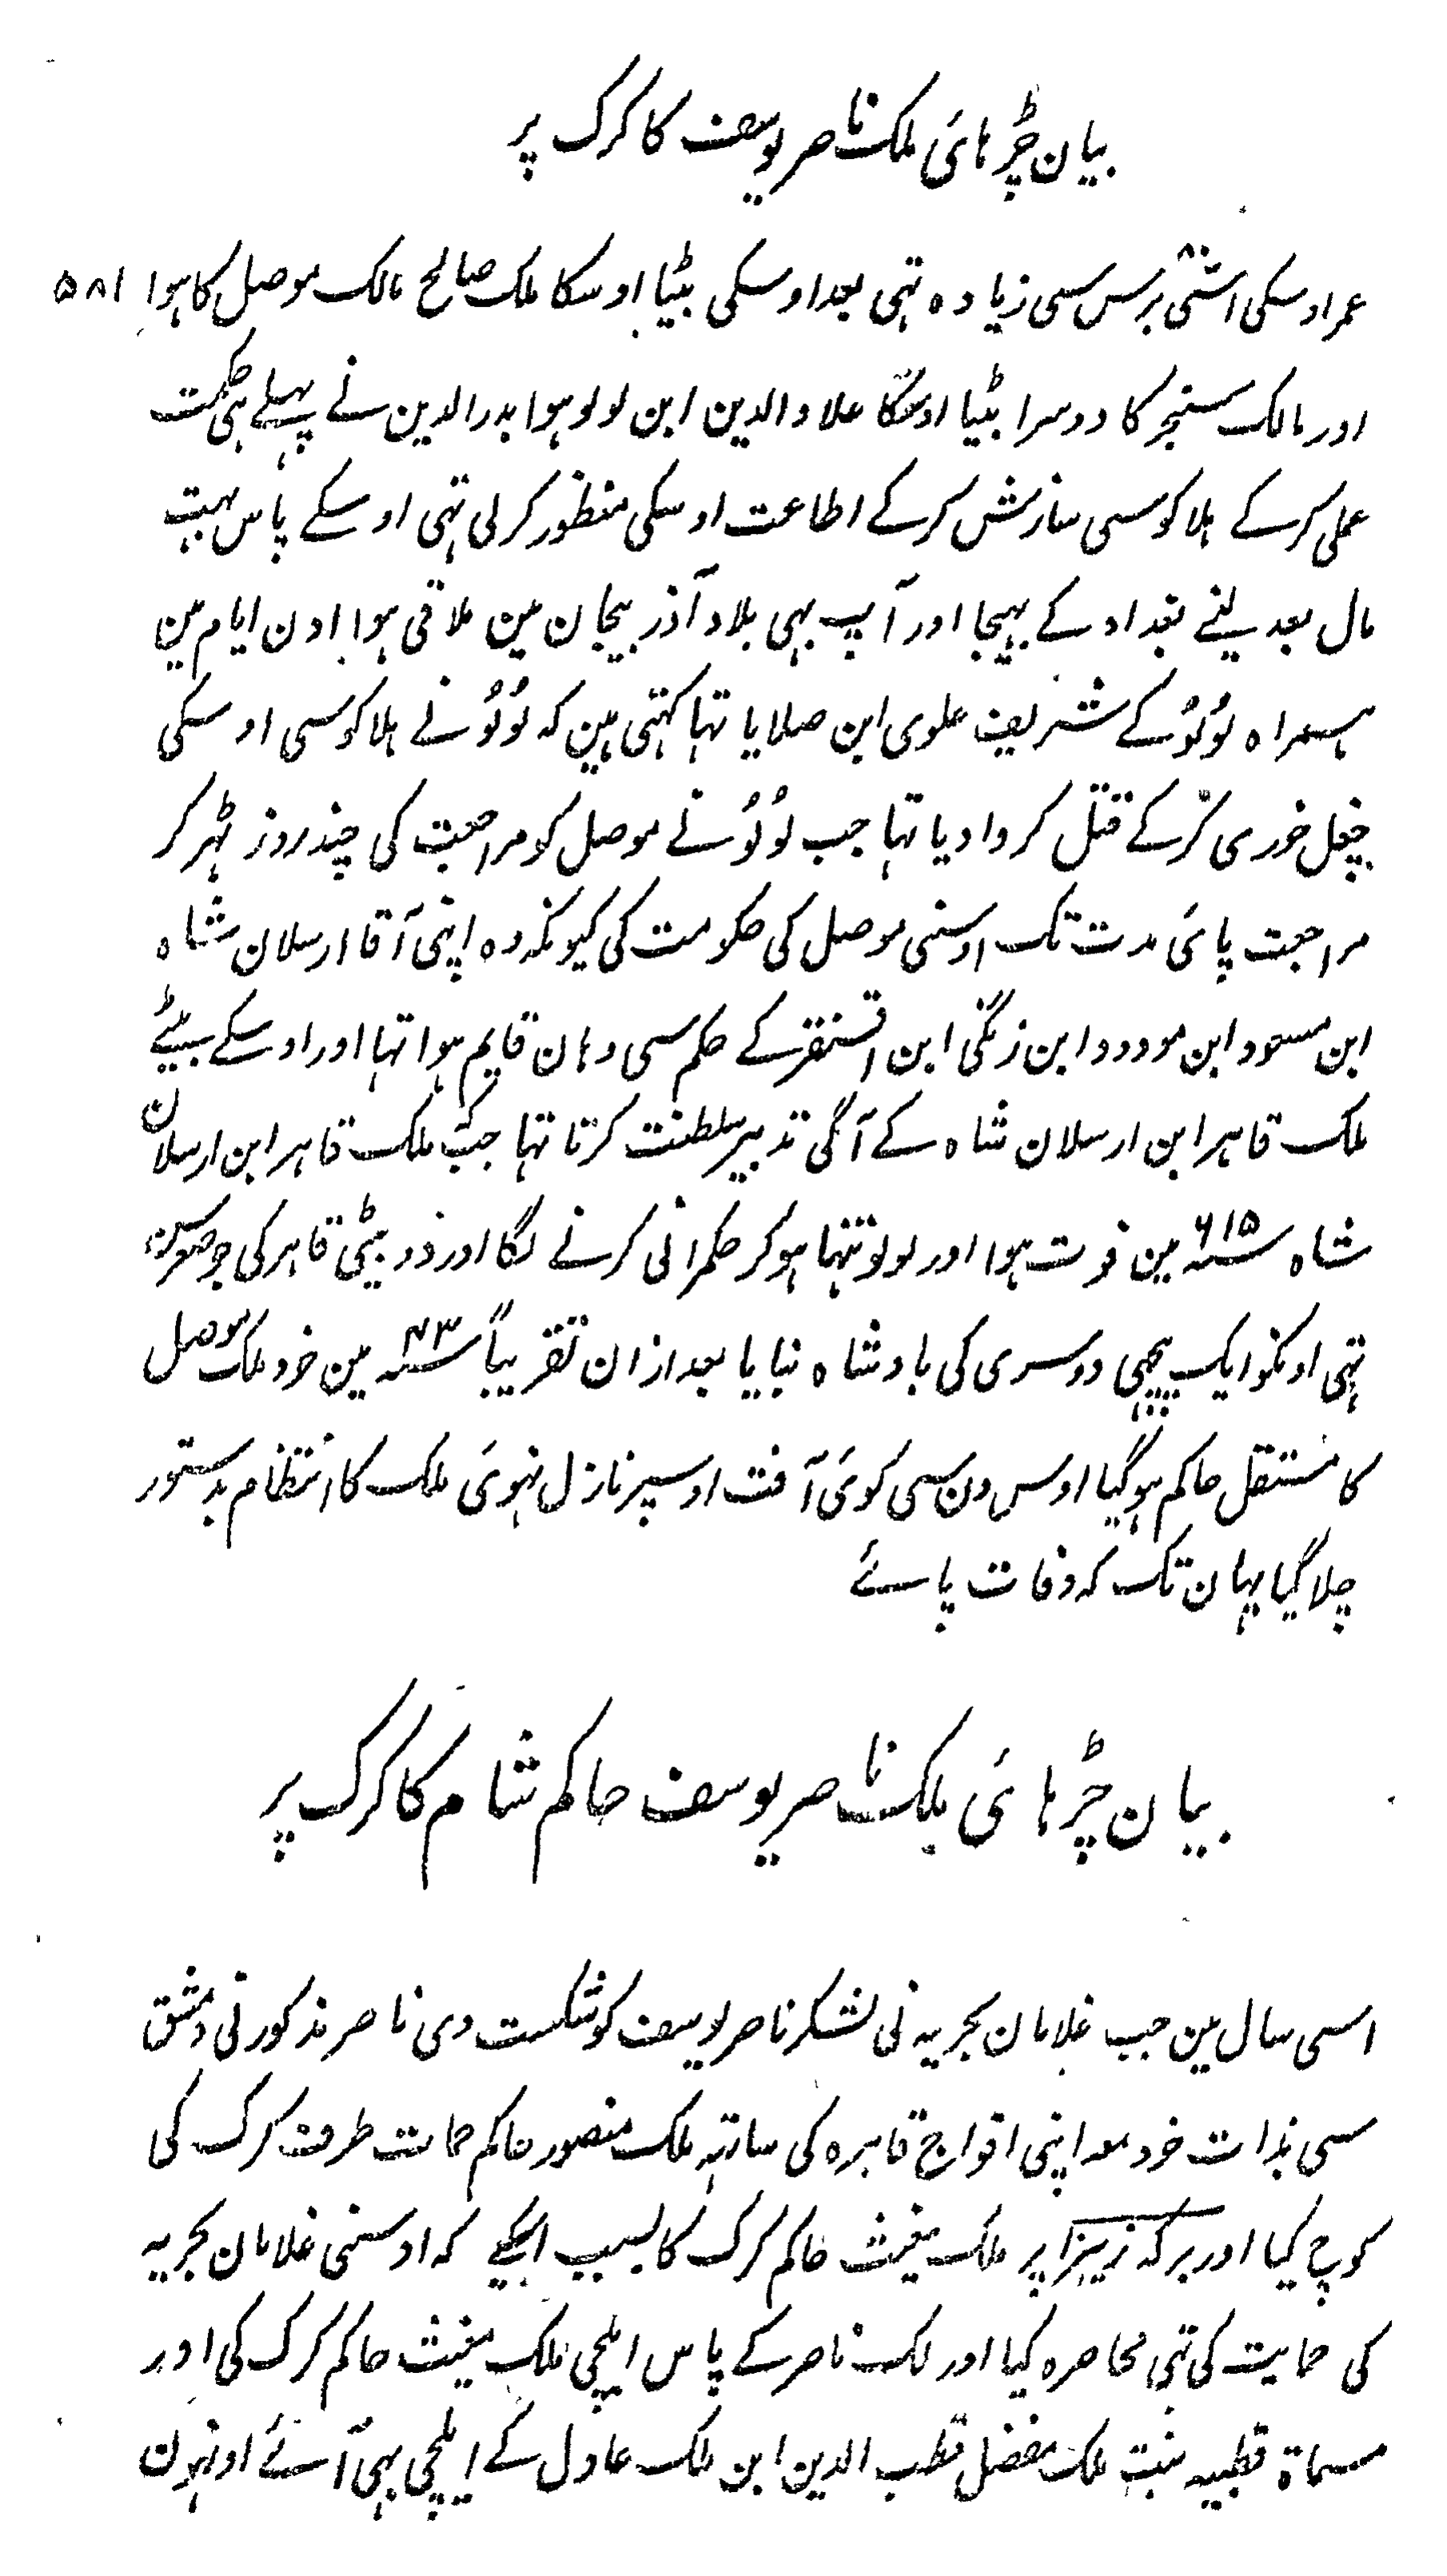 بیان چڑہائی ملک ناصر یوسف کا کرک پر
عمر اوسکی اسّی ۸۰ برس سی زیادہ تہی بعد اوسکی بیٹا اوسکا ملک صالح مالک موصل کا ہوا ۵۸۱
اور مالک سنجر کا دوسرا بیٹا اوسکا علاو الدین ابن لولو ہوا بدر الدین نے پہلے ہی حکمت
عملی کرکے ہلاکو سی سازش کرکے اطاعت اوسکی منظور کر لی تہی اوسکے پاس بہت
مال بعد لینے بغداد کے بہیجا اور آپ بہی بلاد آذربیجان مین ملاقی ہوا اون ایام مین
ہمراہ لُولُو کے شریف علوی ابن صلایا تہا کہتی ہین کہ لُولُو نے ہلاکو سی اوسکی
چغل خوری کرکے قتل کروا دیا تہا جب لُولُو نے موصل کو مراجعت کی چند روز ٹہر کر
مراجعت پائی مدت تک اوسنی موصل کی حکومت کی کیونکہ وہ اپنی آقا ارسلان شاہ
ابن مسعود ابن مودود ابن زنگی ابن اقسنقر کے حکم سی وہان قایم ہوا تہا اور اوسکے بیٹے
ملک قاہر ابن ارسلان شاہ کے آگی تدبیر سلطنت کرتا تہا جبکہ ملک قاہر ابن ارسلان
شاہ سنہ ۶۱۵ مین فوت ہوا اور لولو تنہا ہو کر حکمرانی کرنے لگا اور دو بیٹی قاہر کی جو صغیر سن
تہی اونکو ایک پیچہی دوسری کی بادشاہ بنایا بعد ازان تقریباً سنہ ۶۳۱ مین خود ملک موصل
کا مستقل حاکم ہو گیا اوس دن سی کوئی آفت اوسپر نازل نہوئی ملک کا انتظام بدستور
چلا گیا یہان تک کہ وفات پائے
بیان چڑہائی ملک ناصر یوسف حاکم شام کا کرک پر
اسی سال مین جب غلامان بحریہ نی لشکر ناصر یوسف کو شکست دی ناصر مذکور نی دمشق
سی بذات خود معہ اپنی افواج قاہرہ کی ساتہہ ملک منصور حاکم حمات طرف کرک کی
کوچ کیا اور برکہ زیزا پر ملک مغیث حاکم کرک کا بسبب اسکے کہ اوسنی غلامان بحریہ
کی حمایت کی تہی محاصرہ کیا اور ملک ناصر کے پاس ایلچی ملک مغیث حاکم کرک کی اور
مسماۃ قطبیہ بنت ملک مفضل قطب الدین ابن ملک عادل کے ایلچی بہی آئے اونہون